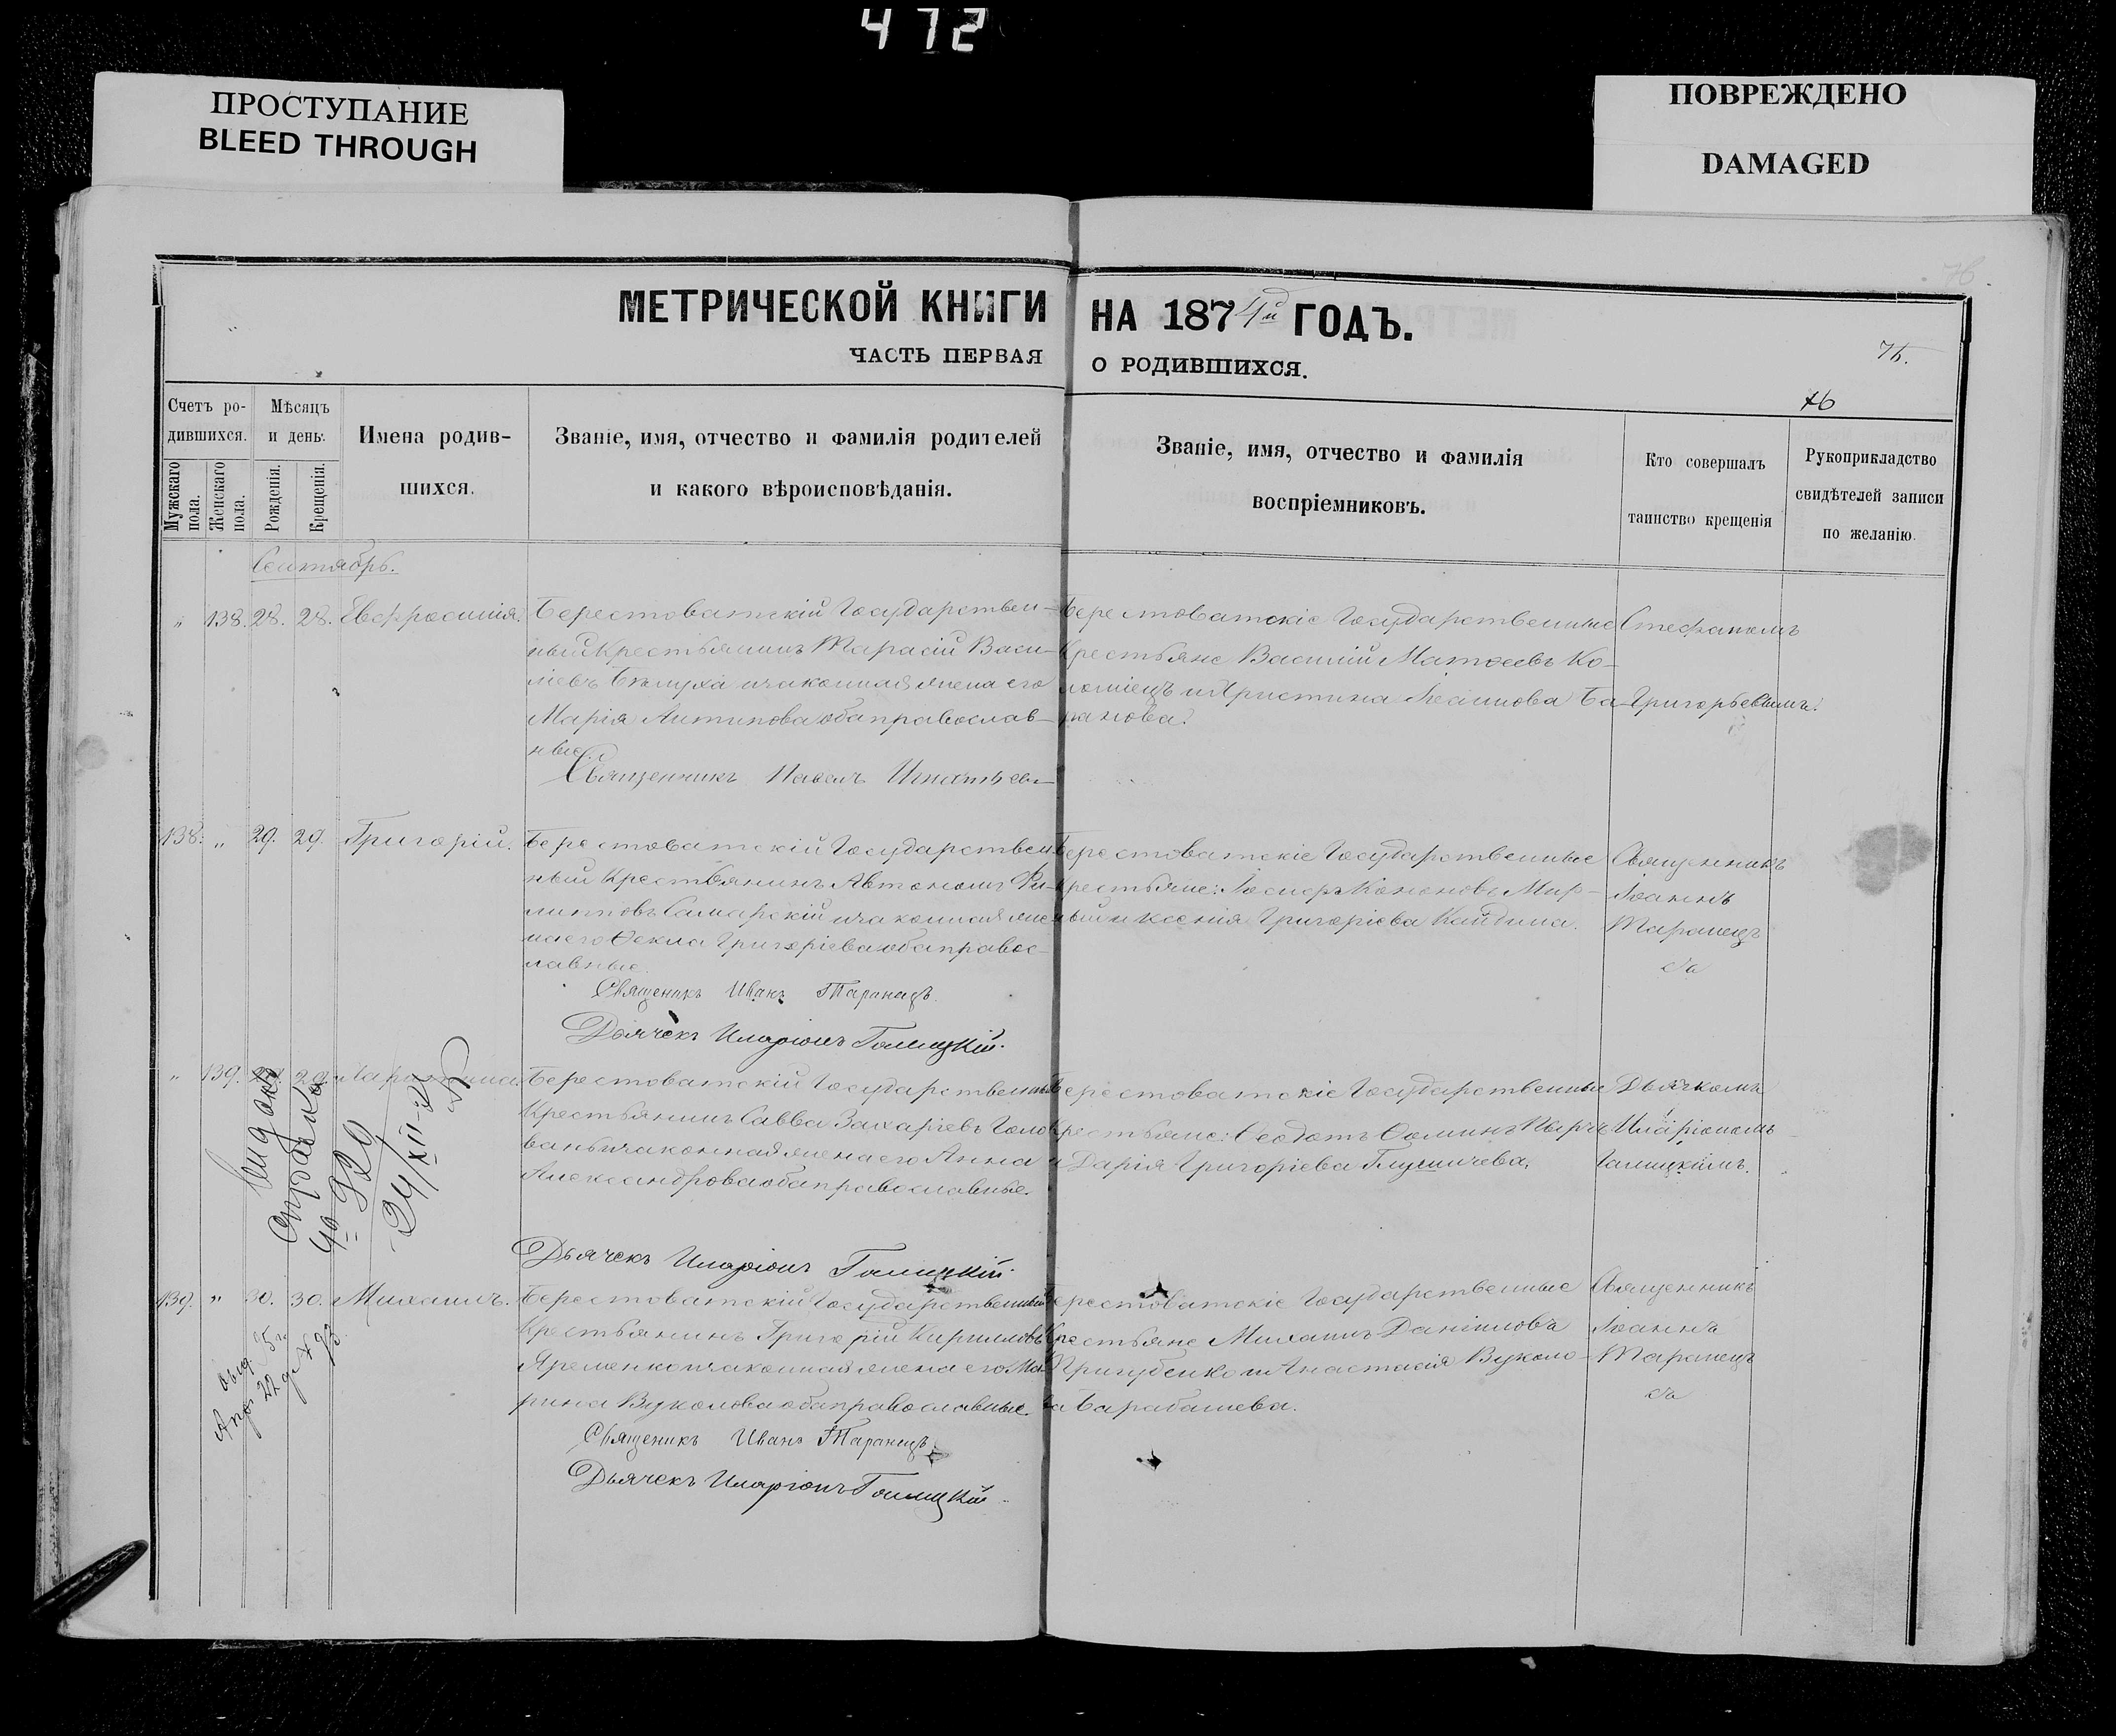 472
ПРОСТУПАНИЕ
BLEED THROUGH
ПОВРЕЖДЕНО
DAMAGED
МЕТРИЧЕСКОЙ КНИГИ НА 1874й ГОДЪ.
ЧАСТЬ ПЕРВАЯ О РОДИВШИХСЯ.
76
Счетъ ро-
дившихся.
Мужскаго пола.
Женскаго пола.
Мѣсяцъ
и день.
Рожденія.
Крещенія.
Имена родив-
шихся.
Званіе, имя, отчество и фамилія родителей
и какого вѣроисповѣданія.
Званіе, имя, отчество и фамилія
воспріемниковъ.
Кто совершалъ
таинство крещенія
Рукоприкладство
свидѣтелей записи
по желанію.
Сентябрь.
„ 138. 28. 28. Евфросинія.
Берестоватскій Государствен-
ный Крестьянинъ Тарасій Васи-
ліевъ Бѣлуха и законная жена его
Марія Антипова оба православ-
ные.
Священникъ Павелъ
Берестоватскіе Государственные
Крестьяне Василій Матѳеевъ Ко-
ломіецъ и Христина Іоаннова Ба-
ранова.
Стефаномъ
Григорьевымъ.
138. „ 29. 29. Григорій.
Берестоватскій Государствен-
ный Крестьянинъ Автономъ Фи-
липповъ Самарскій и законная же-
на его Ѳекла Григоріева оба правос-
лавные.
Священикъ Иванъ Таранецъ.
Дьячекъ Иларіонъ Галицкій.
Берестоватскіе Государственные
крестьяне: Іосифъ Кононовъ Мир-
ный и Ксенія Григоріева Кайдина.
Священникъ
Іоаннъ
Таранецъ
„ 139. 29. 29.
Берестоватскій Государственный
Крестьянинъ Савва Захаріевъ Голо-
вань и законная жена его Анна
Александрова оба православные.
Дьячекъ Иларіонъ Галицкій.
Берестоватскіе Государственные
крестьяне: Ѳеодотъ Ѳоминъ
и Дарія Григоріева
Дьячкомъ
Иларіономъ
Галицкимъ.
выдана
справка
24/XII-
139. „ 30. 30. Михаилъ.
Берестоватскій Государственный
Крестьянинъ Григорій Кирилловъ
Яременко и законная жена его Ма-
рина Вуколова оба православные.
Священикъ Иванъ Таранецъ.
Дьячекъ Иларіонъ Галицкій.
Берестоватскіе Государственные
Крестьяне Михаилъ Даніиловъ
Пригубенко и Анастасія Вуколо-
ва Барабашева.
Священникъ
Іоаннъ
Таранецъ